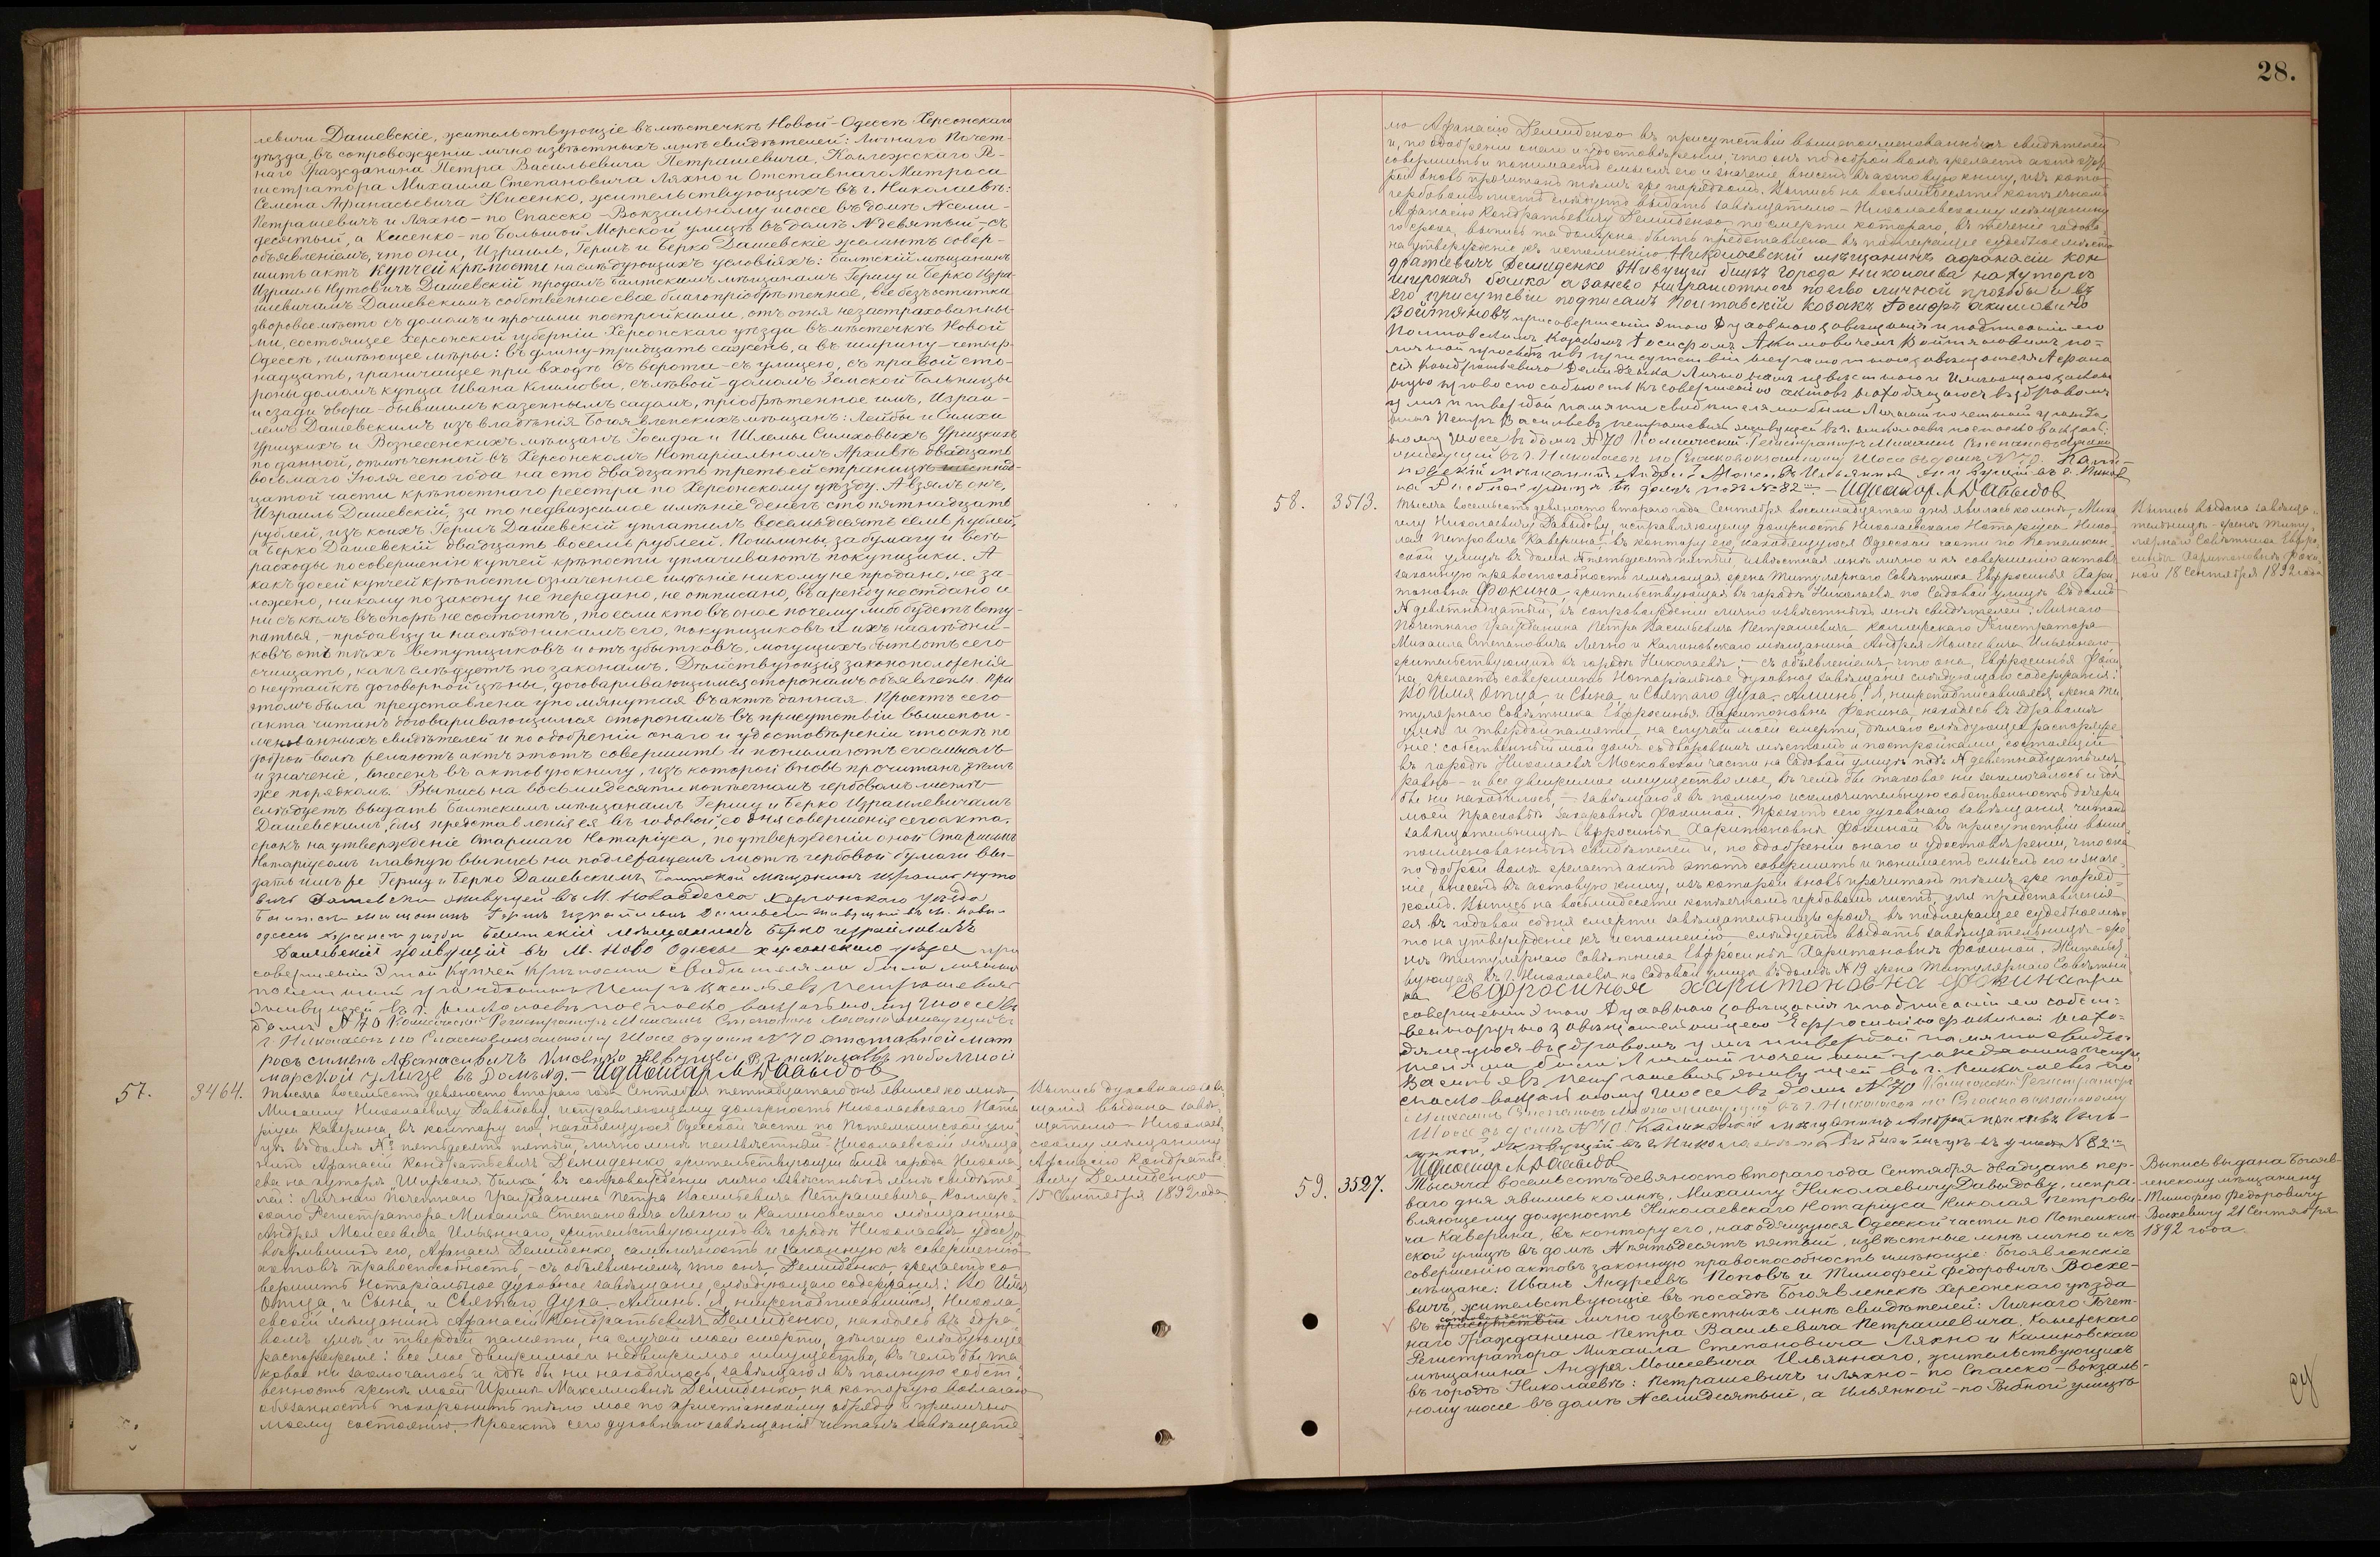 28.
левичи Дашевскіе, жительствующіе въ мѣстечкѣ Новой-Одессѣ Херсонскаго
уѣзда, въ сопровожденіи лично извѣстныхъ мнѣ свидѣтелей: Личнаго Почет-
наго Гражданина Петра Васильевича Петрашевича, Коллежскаго Ре-
гистратора Михаила Степановича Ляхно и Отставнаго Матроса
Семена Афанасьевича Кисенко, жительствующихъ въ г. Николаевѣ:
Петрашевичъ и Ляхно - по Спасско-Вокзальному шоссе въ домѣ № семи-
десятый, а Кисенко - по Большой Морской улицѣ въ домѣ № девятый - съ
объявленіемъ, что они, Израиль, Гершъ и Берко Дашевскіе желаютъ совер-
шить актъ купчей крѣпости на слѣдующихъ условіяхъ: Балтскій мѣщанинъ
Израиль Нутовичъ Дашевскій продалъ Балтскимъ мѣщанамъ Гершу и Берко Изра-
илевичамъ Дашевскимъ собственное свое благопріобрѣтенное, все безъ остатка
дворовое мѣсто съ домомъ и прочими постройками, отъ огня незастрахованны-
ми, состоящее Херсонской губерніи Херсонскаго уѣзда въ мѣстечкѣ Новой
Одессѣ, имѣющее мѣры: въ длину - тридцать саженъ, а въ ширину - четыр-
надцать, граничащее при входѣ въ ворота - съ улицею, съ правой сто-
роны домомъ купца Ивана Климова, съ лѣвой - домомъ Земской Больницы
и сзади двора - бывшимъ казеннымъ садомъ, пріобрѣтенное имъ, Израи-
лемъ Дашевскимъ изъ владѣнія Богоявленскихъ мѣщанъ: Лейбы и Симхи
Урицкихъ и Вознесенскихъ мѣщанъ Іосифа и Шлемы Симховыхъ Урицкихъ
по данной, отмѣченной въ Херсонскомъ Нотаріальномъ Архивѣ двадцать
восьмаго Іюля сего года на сто двадцать третьей страницѣ
цатой части крѣпостнаго реестра по Херсонскому уѣзду. А взялъ онъ,
Израиль Дашевскій, за то недвижимое имѣніе денегъ сто пятнадцать
рублей, изъ коихъ Гершъ Дашевскій уплатилъ восемьдесятъ семь рублей,
а Берко Дашевскій двадцать восемь рублей. Пошлины, за бумагу и всѣ
расходы по совершенію купчей крѣпости уплачиваютъ покупщики. А
какъ до сей купчей крѣпости означенное имѣніе никому не продано, не за-
ложено, никому по закону не передано, не отписано, въ аренду не отдано и
ни съ кѣмъ въ спорѣ не состоитъ, то если кто въ оное почему либо будетъ всту-
паться, - продавцу и наслѣдникамъ его, покупщиковъ и ихъ наслѣдни-
ковъ отъ тѣхъ вступщиковъ и отъ убытковъ, могущихъ быть отъ сего
очищать, какъ слѣдуетъ по законамъ. Дѣйствующія законоположенія
о неутайкѣ договорной цѣны, договаривающимся сторонамъ объявлены. При
этомъ была представлена упомянутая въ актѣ данная. Проектъ сего
акта читанъ договаривающимся сторонамъ въ присутствіи вышепои-
менованныхъ свидѣтелей и по одобреніи онаго и удостовѣреніи что онѣ по
доброй волѣ желаютъ актъ этотъ совершить и понимаютъ его смыслъ
и значеніе, внесенъ въ актовую книгу, изъ которой вновь прочитанъ тѣмъ
же порядкомъ. Выпись на восьмидесяти копѣечномъ гербовомъ листѣ
слѣдуетъ выдать Балтскимъ мѣщанамъ Гершу и Берко Израилевичамъ
Дашевскимъ, для представленія ея въ годовой, со дня совершенія сего акта,
срокъ на утвержденіе Старшаго Нотаріуса, по утвержденіи оной Старшимъ
Нотаріусомъ главную выпись на подлежащемъ листѣ гербовой бумаги вы-
дать имъ же Гершу и Берко Дашевскимъ. Балтской Мѣщанинъ Израиль Нуто
вичъ Дашевски живущей въ М. Новоодеса Херсонскаго уѣзда
Берко Израйловичъ
Дашевскій живущій въ М. Ново Одессы херсонскаго уѣзда при
совершеніи этой купчей крѣпости свидѣтелями были личный
почетный гражданинъ Петръ Васильевъ Петрашевичъ
живущей въ г. Николаевѣ по спаско вокзальному шоссе въ
домѣ №70 Коллежскій Регистраторъ Михаилъ Степановъ Ляхно живущій въ
г. Николаевѣ по Спасковокзальному Шоссе въ домѣ №70 отставной мат
росъ симѣнъ Афанасивичъ Кисенко живущей въ г николаевѣ по болшой
марской улице въ Домѣ №9. - И д Нотар М Давыдовъ
57. 3464. Тысяча восемьсотъ девяносто втораго года Сентября пятнадцатаго дня явился ко мнѣ,
Михаилу Николаевичу Давыдову, исправляющему должность Николаевскаго Нота-
ріуса Каверина, въ контору его, находящуюся Одесской части по Потемкинской ули-
цѣ въ домѣ № пятьдесятъ пятый, лично мнѣ неизвѣстный Николаевскій мѣща-
нинъ Афанасій Кондратьевичъ Демиденко, жительствующій близъ города Никола-
ева на хуторѣ "Широкая Балка", въ сопровожденіи лично извѣстныхъ мнѣ свидѣте-
лей: Личнаго Почетнаго Гражданина Петра Васильевича Петрашевича, Коллеж-
скаго Регистратора Михаила Степановича Ляхно и Калиновскаго мѣщанина
Андрея Моисеевича Ильяннаго, жительствующихъ въ городѣ Николаевѣ, удосто-
вѣрившихъ его, Афанасія Демиденко, самоличность и законную къ совершенію
актовъ правоспособность - съ объявленіемъ, что онъ, Демиденко, желаетъ со-
вершить нотаріальное духовное завѣщаніе, слѣдующаго содержанія: Во Имя
Отца, и Сына, и Святаго Духа. Аминь. Я, нижеподписавшійся, Никола-
евскій мѣщанинъ Афанасій Кондратьевичъ Демиденко, находясь въ здра-
вомъ умѣ и твердой памяти, на случай моей смерти, дѣлаю слѣдующее
распоряженіе: все мое движимое и недвижимое имущество, въ чемъ бы та-
ковое ни заключалось и гдѣ бы ни находилось, завѣщаю я въ полную собст-
венность женѣ моей Иринѣ Максимовнѣ Демиденко, на которую возлагаю
обязанность похоронить тѣло мое по христіанскому обряду и прилично
моему состоянію. Проектъ сего духовнаго завѣщанія читанъ завѣщате-
Выпись духовнаго завѣ-
щанія выдана завѣ-
щателю - Николаев-
скому мѣщанину
Афанасію Кондратье-
вичу Демиденко
15 Сентября 1892 года.
лю Афанасію Демиденко въ присутствіи вышепоименованныхъ свидѣтелей
и, по одобреніи онаго и удостовѣреніи, что онъ по доброй волѣ желаетъ актъ этотъ
совершить и понимаетъ смыслъ его и значеніе, внесенъ въ актовую книгу, изъ кото-
рой вновь прочитанъ тѣмъ же порядкомъ. Выпись на восьмидесяти копѣечномъ
гербовомъ листѣ слѣдуетъ выдать завѣщателю - Николаевскому мѣщанину
Афанасію Кондратьевичу Демиденко, по смерти котораго, въ теченіе годова-
го срока, выпись та должна быть представлена въ подлежащее судебное мѣсто
на утвержденіе къ исполненію. Николаевскій мѣщанинъ афанасій Кон
дратіевичъ Демиденко Живущій близъ города Николаева на хуторѣ
широкая балка а занево ниграмотного по его личной прозьбы и въ
его присутсвіи подписалъ Полтавскій Козакъ Іосифъ Акимовичъ
Войтяновъ при совершеніи этого Духовнаго завѣщанія и подписаніи его
Полтавскимъ Казакомъ Іосифомъ Акимовичемъ Войтяновымъ по
личной просьбѣ и въ присутствіи неграмотнаго завѣщателя Афана
сія Кондратьевича Демиденка Лично намъ извѣстнаго и имѣющаго закон
ную правоспособность къ совершенію актовъ находящагося въ здравомъ
умѣ и твердой памяти свидѣтелями были Личный почетный гражда
нинъ Петръ Васильевъ Петрашевичъ живущей въ г. николаевѣ по спаско вокзал
ному шоссе въ домѣ №70 Коллежскій Регистраторъ Михаилъ Степановъ Ляхно
живущій въ г. Николаевѣ по Спасковокзальному Шоссе въ домѣ №70. Кали-
58. 3513. Тысяча восемьсотъ девяносто втораго года Сентября восемнадцатаго дня явилась ко мнѣ, Миха-
илу Николаевичу Давыдову, исправляющему должность Николаевскаго Нотаріуса Нико-
лая Петровича Каверина, въ контору его, находящуюся Одесской части по Потемкин-
ской улицѣ въ домѣ № пятьдесятъ пятый извѣстная мнѣ лично и къ совершенію актовъ
законную правоспособность имѣющая жена Титулярнаго Совѣтника Евфросинья Хари-
тоновна Фокина, жительствующая въ городѣ Николаевѣ по Садовой улицѣ въ домѣ
№ девятнадцатый, въ сопровожденіи лично извѣстныхъ мнѣ свидѣтелей: Личнаго
Почетнаго Гражданина Петра Васильевича Петрашевича, Коллежскаго Регистратора
Михаила Степановича Ляхно и Калиновскаго мѣщанина Андрея Моисеевича Ильяннаго,
жительствующихъ въ городѣ Николаевѣ, - съ объявленіемъ, что она, Евфросинья Фоки-
на, желаетъ совершить Нотаріальное духовное завѣщаніе слѣдующаго содержанія:
Во Имя Отца, и Сына, и Святаго Духа. Аминь. Я, нижеподписавшаяся, жена Ти-
тулярнаго Совѣтника Евфросинья Харитоновна Фокина, находясь въ здравомъ
умѣ и твердой памяти, на случай моей смерти, дѣлаю слѣдующее распоряже-
ніе: собственный мой домъ съ дворовымъ мѣстомъ и постройками, состоящій
въ городѣ Николаевѣ Московской части на Садовой улицѣ подъ № девятнадцатымъ,
равно - и все движимое имущество мое, въ чемъ бы таковое ни заключалось и гдѣ
бы ни находилось, - завѣщаю я въ полную исключительную собственность дочери
моей Прасковьѣ Захаровнѣ Фокиной. Проектъ сего духовнаго завѣщанія читанъ
завѣщательницѣ Евфросиньѣ Харитоновнѣ Фокиной въ присутствіи выше-
поименованныхъ свидѣтелей и, по одобреніи онаго и удостовѣреніи, что она
по доброй волѣ желаетъ актъ этотъ совершить и понимаетъ смыслъ его и значе-
ніе, внесенъ въ актовую книгу, изъ которой вновь прочитанъ тѣмъ же поряд-
комъ. Выпись на восьмидесяти копѣечномъ гербовомъ листѣ, для представленія
ея въ годовой со дня смерти завѣщательницы срокъ въ подлежащее судебное мѣс-
то на утвержденіе къ исполненію слѣдуетъ выдать завѣщательницѣ - же-
нѣ Титулярнаго Совѣтника Евфросиньѣ Харитоновнѣ Фокиной. Жительст-
вующая въ г. Николаевѣ на Садовой улицѣ въ домѣ №19 жена Титулярнаго Совѣтни-
ка Евфросинья Харитоновна Фокина при
совершеніи этого Духовнаго завѣщанія и подписаніи его собст-
венноручно завѣщательницею Ефросиніею Фокиной нахо-
дящеюся въ здравомъ умѣ и твердой памяти свидѣ-
телями были Личный почетный гражданинъ Петръ
Васильевъ Петрашевичъ живущей въ г. Николаевѣ по
спаско вокзалному шоссе въ домѣ №70 Коллежскій Регистраторъ
Михаилъ Степановъ Ляхно живущій въ г. Николаевѣ по Спасковокзальному
И д Нотар М Давыдовъ
Выпись выдана завѣща-
тельницѣ - женѣ Титу-
лярнаго Совѣтника Евфро-
синьѣ Харитоновнѣ Фоки-
ной 18 Сентября 1892 года
59. 3527. Тысяча восемьсотъ девяносто втораго года Сентября двадцать пер-
ваго дня явились ко мнѣ, Михаилу Николаевичу Давыдову, испра-
вляющему должность Николаевскаго Нотаріуса Николая Петрови-
ча Каверина, въ контору его, находящуюся Одесской части по Потемкин-
ской улицѣ въ домѣ № пятьдесятъ пятый, извѣстные мнѣ лично и къ
совершенію актовъ законную правоспособность имѣющіе: Богоявленскіе
мѣщане: Иванъ Андреевъ Поповъ и Тимофей Федоровичъ Восхе-
вичъ, жительствующіе въ посадѣ Богоявленскѣ Херсонскаго уѣзда
въ присутствіи лично извѣстныхъ мнѣ свидѣтелей: Личнаго Почет-
наго Гражданина Петра Васильевича Петрашевича, Коллежскаго
Регистратора Михаила Степановича Ляхно и Калиновскаго
мѣщанина - Андрея Моисеевича Ильяннаго, жительствующихъ
въ городѣ Николаевѣ: Петрашевичъ и Ляхно - по Спасско-вокзаль-
ному шоссе въ домѣ № семидесятый, а Ильянной - по Рыбной улицѣ
Выпись выдана Богояв-
ленскому мѣщанину
Тимофею Федоровичу
Восхевичу 21 Сентября
1892 года.